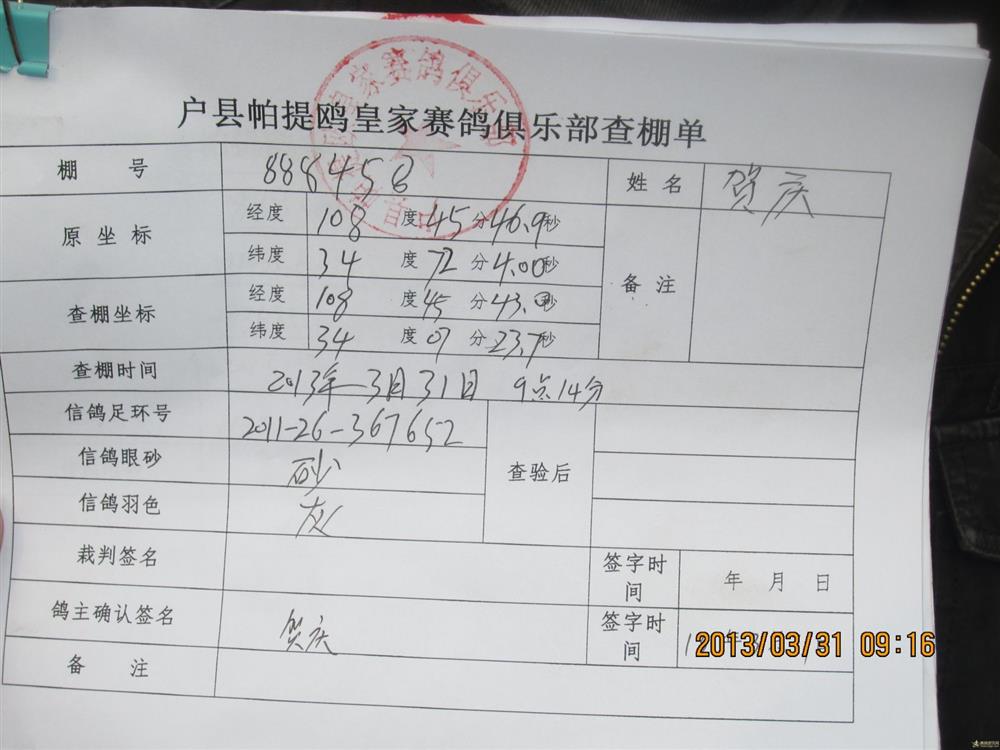 户县帕提鸥皇家赛鸽俱乐部查棚单
棚 号 888458 姓 名 贺庆
原坐标 经度 108 度 45 分 46.9秒 备 注
纬度 34 度 72 分 4.00秒
查棚坐标 经度 108 度 45 分 43.0秒
纬度 34 度 07 分 23.7秒
查棚时间 2013年3月31日 9点14分
信鸽足环号 2011-26-367652 查验后
信鸽眼砂 砂
信鸽羽色 灰
栽判签名 签字时间 年 月 日
鸽主确认签名 贺庆 签字时间
备 注
2013/03/31 09:16